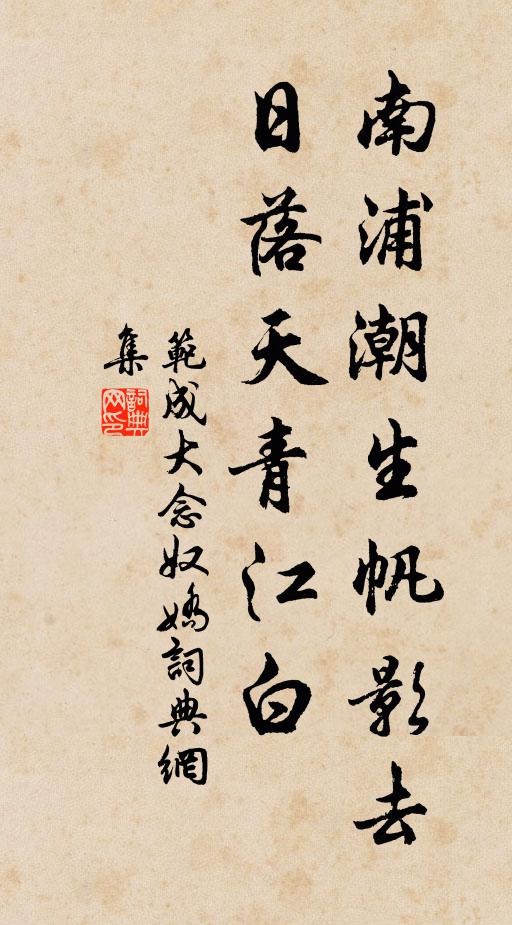 南浦潮生帆影去
日落天青江白
範成大念奴嬌詞典網
集
詞典
网印